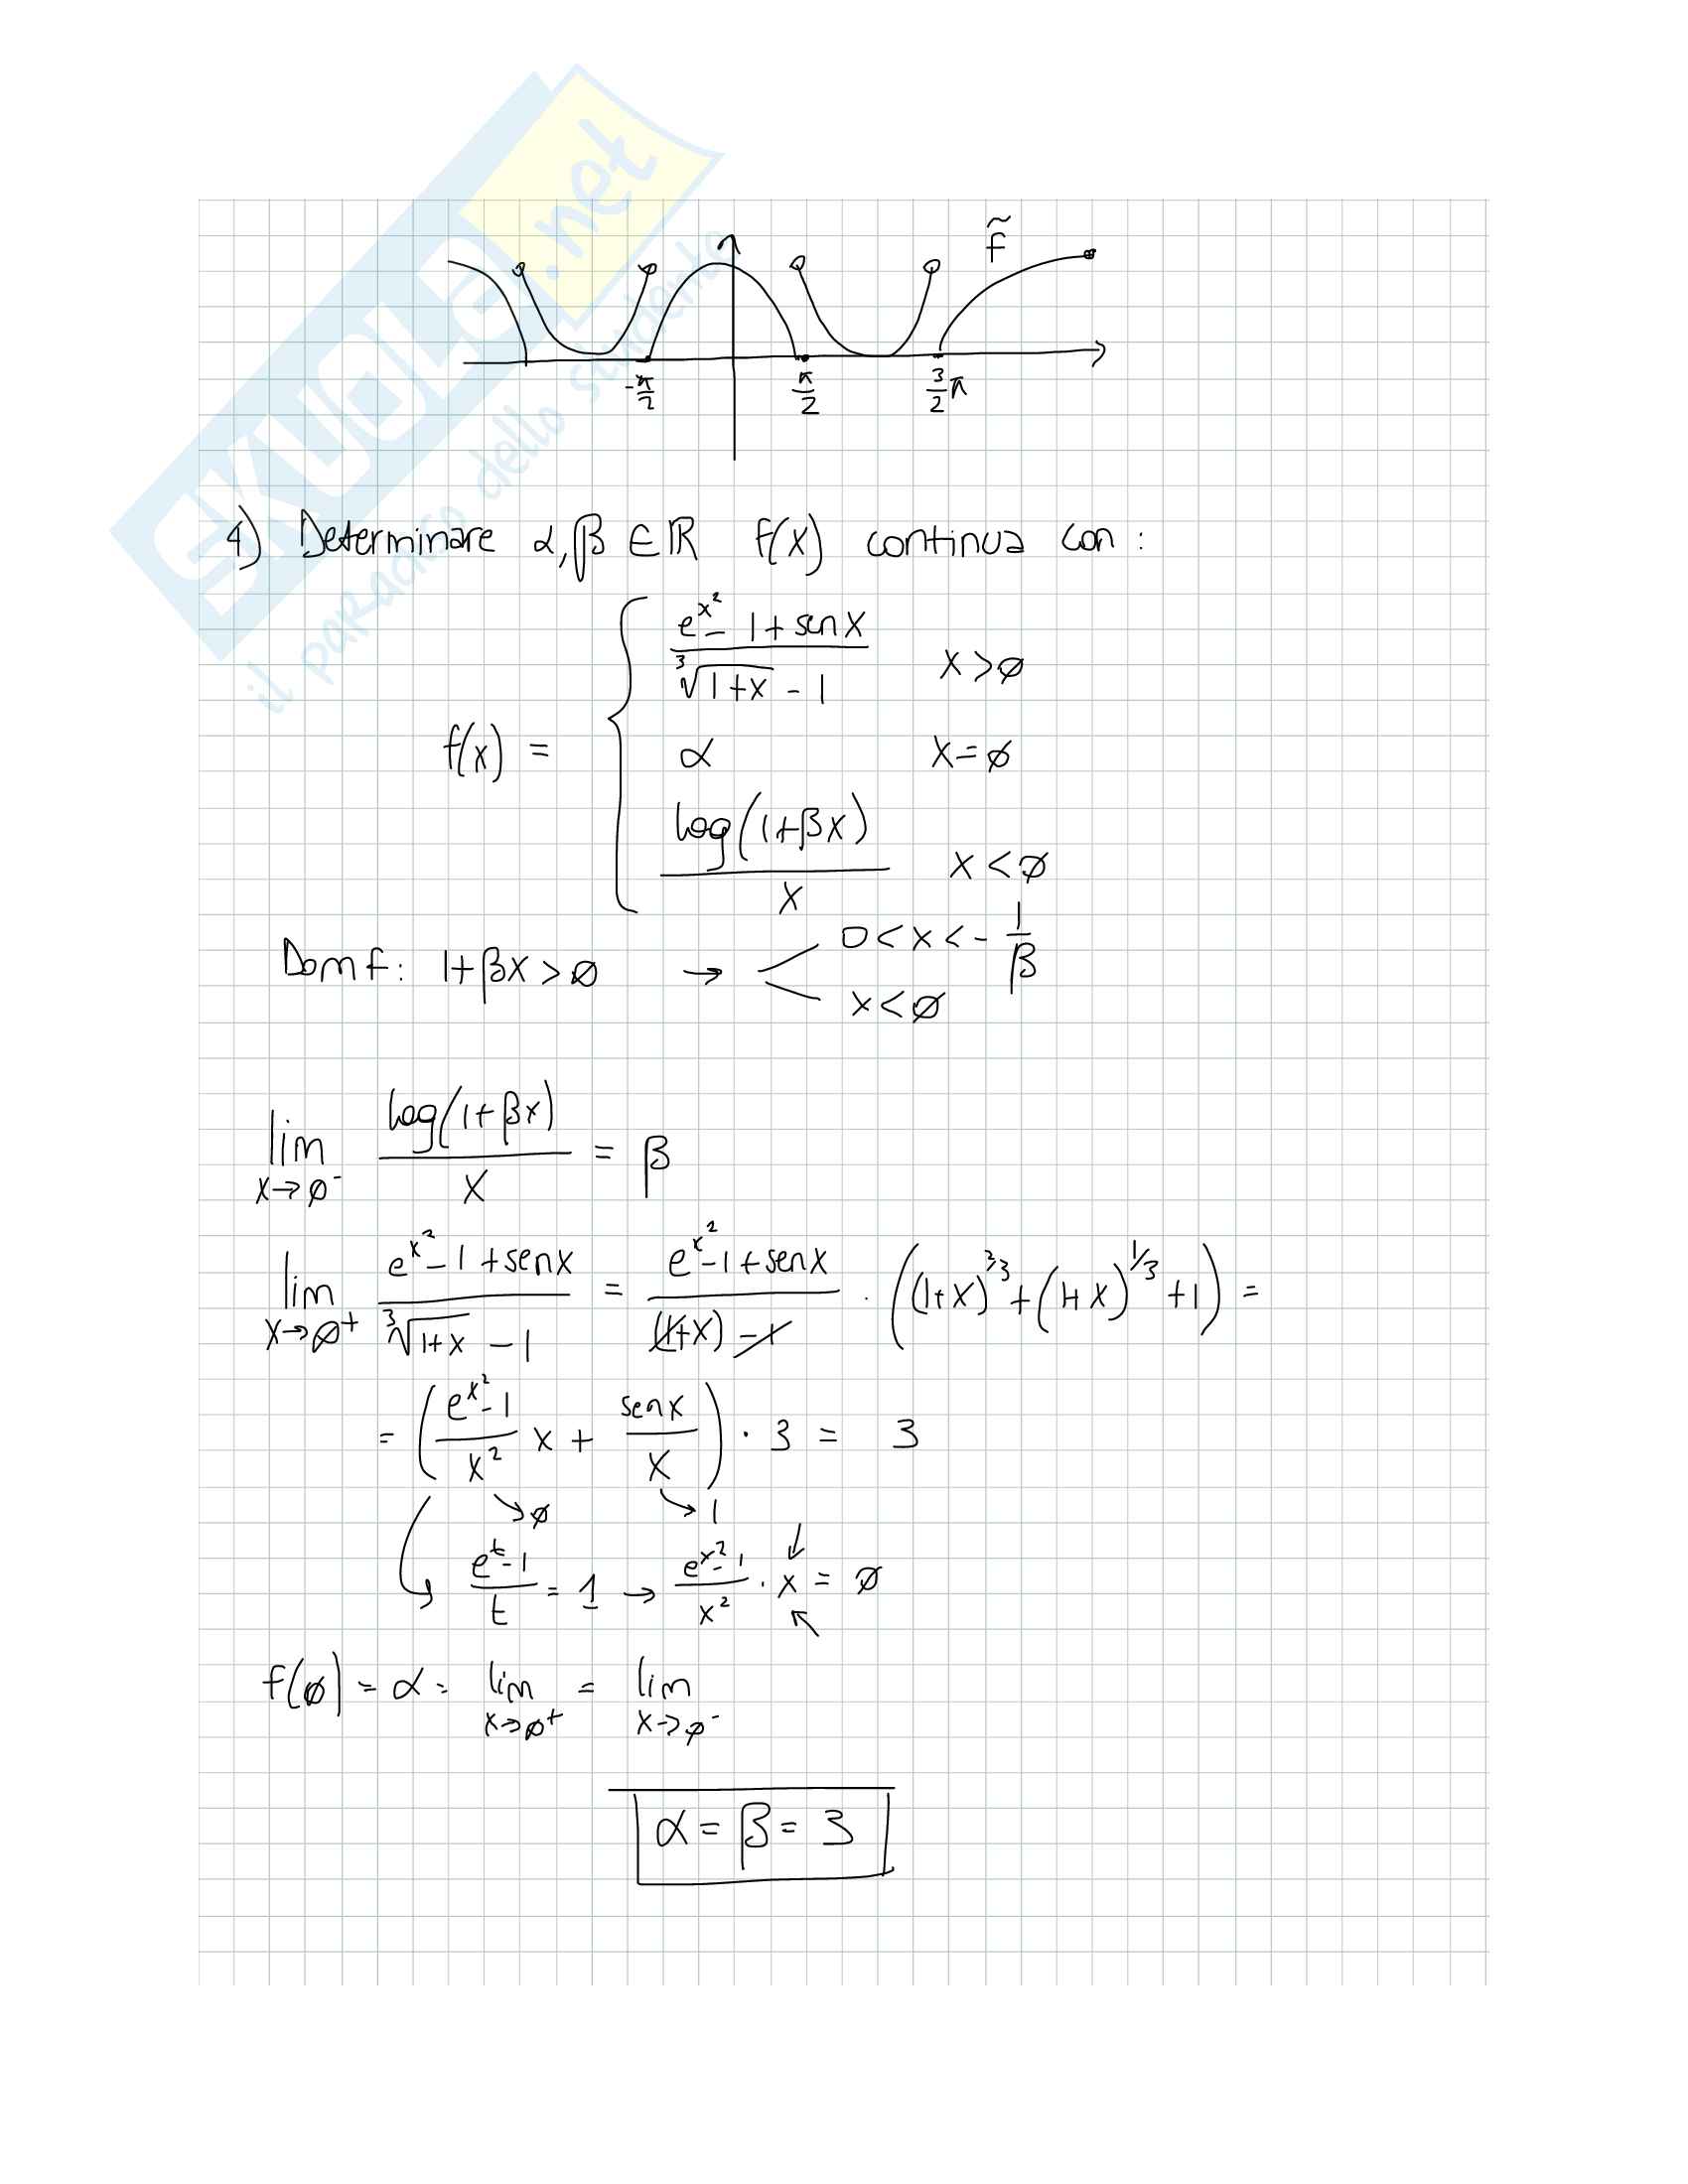 SKUOLA.net
il paradiso dello studente
f̃
-π/2 π/2 3/2 π
4) Determinare α, β ∈ ℝ f(x) continua con :
f(x) = { (e^x² - 1 + sen x) / (∛(1+x) - 1) x > ∅
α x = ∅
log(1+βx) / x x < ∅
Dom f : 1+βx > ∅ → 0 < x < - 1/β
x < ∅
lim x→∅⁻ log(1+βx) / x = β
lim x→∅⁺ (e^x² - 1 + sen x) / (∛(1+x) - 1) = (e^x² - 1 + sen x) / ((1+x) - 1) · ((1+x)^2/3 + (1+x)^1/3 + 1) =
= ((e^x² - 1) / x² x + sen x / x) · 3 = 3
↘ ∅ ↘ 1
(e^t - 1) / t = 1 → (e^x² - 1) / x² · x = ∅
f(∅) = α = lim x→∅⁺ = lim x→∅⁻
α = β = 3